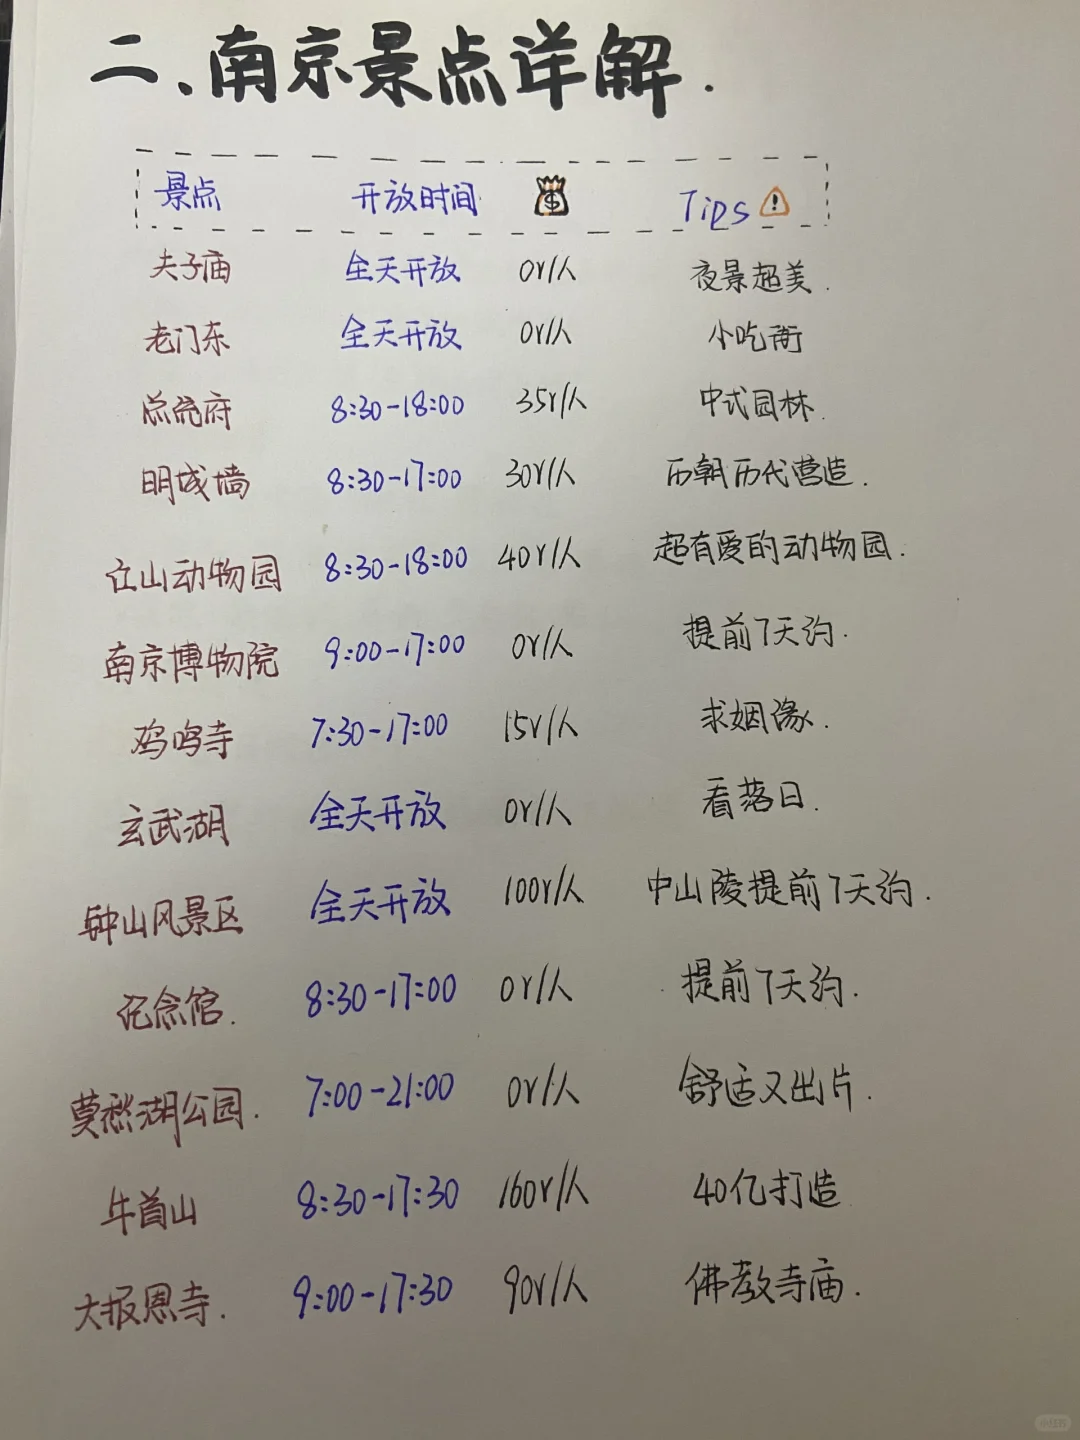 二、南京景点详解.
景点 开放时间 $ Tips !
夫子庙 全天开放 0r/人 夜景超美.
老门东 全天开放 0r/人 小吃街
总统府 8:30-18:00 35r/人 中式园林.
明城墙 8:30-17:00 30r/人 历朝历代营造.
红山动物园 8:30-18:00 40r/人 超有爱的动物园.
南京博物院 9:00-17:00 0r/人 提前7天约.
鸡鸣寺 7:30-17:00 15r/人 求姻缘.
玄武湖 全天开放 0r/人 看落日.
钟山风景区 全天开放 100r/人 中山陵提前7天约.
纪念馆. 8:30-17:00 0r/人 提前7天约.
莫愁湖公园. 7:00-21:00 0r/人 舒适又出片.
牛首山 8:30-17:30 160r/人 40亿打造
大报恩寺. 9:00-17:30 90r/人 佛教寺庙.
小红书